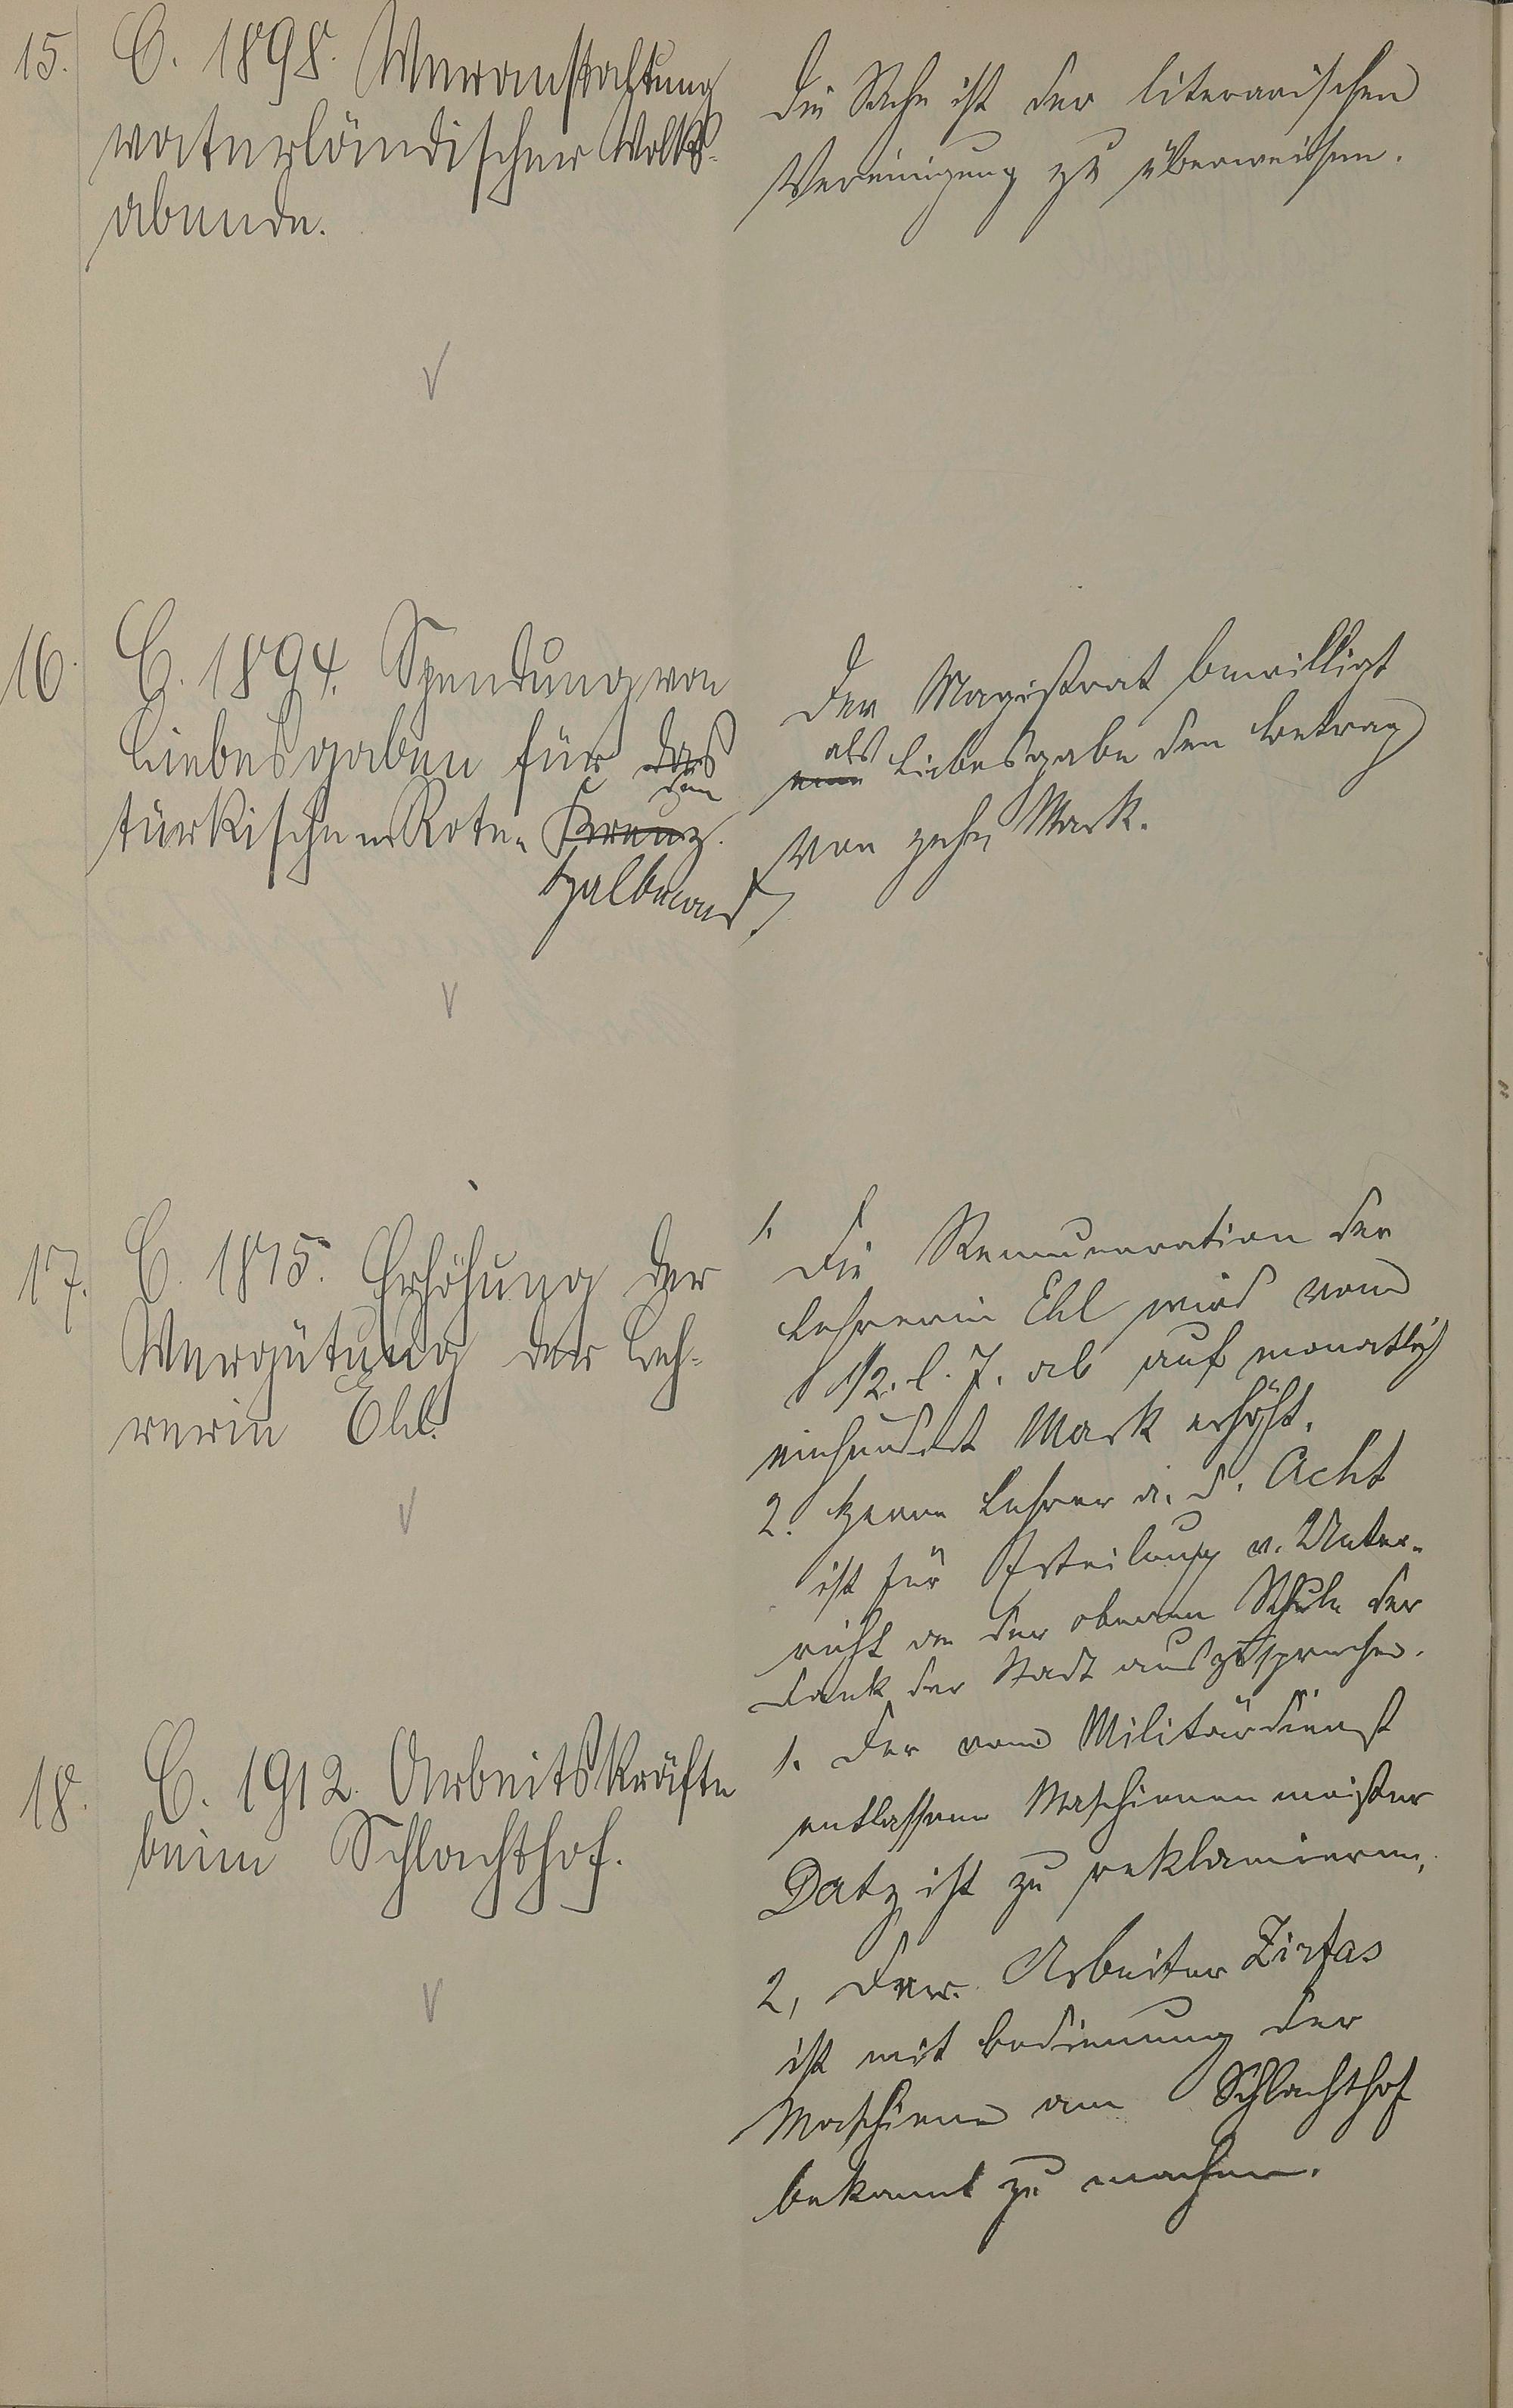 15.
C. 1898. Veranstaltung
vaterländischer Volks-
abende.
Die Sache ist der literarischen
Vereinigung zu überweisen.
16.
C. 1894. Spendung von
Liebesgaben für das
den
türkischen Roten Kreuz.
Halbmond.
Der Magistrat bewilligt
als
eine Liebesgabe den Betrag
von zehn Mark.
17.
C. 1875. Erhöhung der
Vergütung der Leh-
rerin Ehl.
1.
Die Remuneration der
Lehrerin Ehl wird vom
1/2. l. J. ab auf monatlich
einhundert Mark erhöht.
2. Herrn Lehrer a. D. Acht
ist für Erteilung v. Unter-
richt an der oberen Schule der
Dank der Stadt auszusprechen.
18.
C. 1912. Arbeitskräfte
beim Schlachthof.
1. Der vom Militärdienst
entlassene Maschinenmeister
Datz ist zu reklamieren.
2, Der Arbeiter Zirfas
ist mit Bedienung der
Maschinen am Schlachthof
bekannt zu machen.